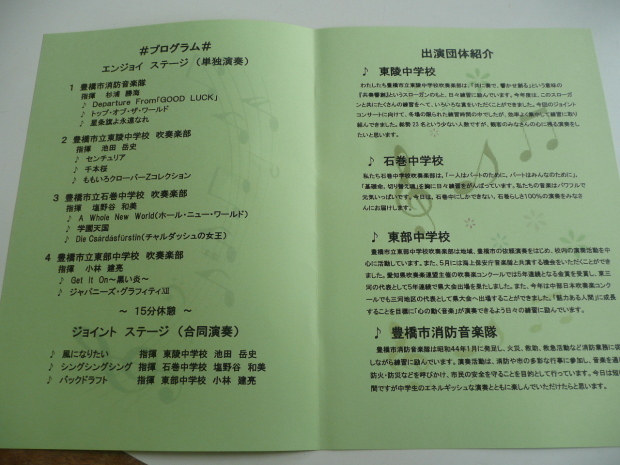 #プログラム#
エンジョイ ステージ (単独演奏)
1 豊橋市消防音楽隊
指揮 杉浦 勝海
♪ Departure From「GOOD LUCK」
♪ トップ・オブ・ザ・ワールド
♪ 星条旗よ永遠なれ
2 豊橋市立東陵中学校 吹奏楽部
指揮 池田 岳史
♪ センチュリア
♪ 千本桜
♪ ももいろクローバーZコレクション
3 豊橋市立石巻中学校 吹奏楽部
指揮 塩野谷 和美
♪ A Whole New World(ホール・ニュー・ワールド)
♪ 学園天国
♪ Die Csárdásfürstin(チャルダッシュの女王)
4 豊橋市立東部中学校 吹奏楽部
指揮 小林 建亮
♪ Get It On～黒い炎～
♪ ジャパニーズ・グラフィティⅫ
～ 15分休憩 ～
ジョイント ステージ (合同演奏)
♪ 風になりたい 指揮 東陵中学校 池田 岳史
♪ シングシングシング 指揮 石巻中学校 塩野谷 和美
♪ バックドラフト 指揮 東部中学校 小林 建亮
出演団体紹介
♪ 東陵中学校
わたしたち豊橋市立東陵中学校吹奏楽部は、「共に奏で、響かせ創る」という意味の
『共奏響創』というスローガンのもと、日々練習に励んでいます。今年度は、このスローガ
ンと共にたくさんの練習をへて、いろいろな賞をいただくことができました。今回のジョイント
コンサートに向けて、冬場の限られた練習時間の中でしたが、効率よく集中して練習に取り
組んできました。総勢23名という少ない人数ですが、観客のみなさんの心に残る演奏をし
たいと思います。
♪ 石巻中学校
私たち石巻中学校吹奏楽部は、「一人はパートのために、パートはみんなのために」、
「基礎命、切り替え魂」を胸に日々練習をがんばっています。私たちの音楽はパワフルで
元気いっぱいです。今日は、石巻中にしかできない、石巻らしさ100%の演奏をみなさ
んにお届けします。
♪ 東部中学校
豊橋市立東部中学校吹奏楽部は地域、豊橋市の依頼演奏をはじめ、校内の演奏活動を中
心に活動しています。また、5月には海上保安庁音楽隊と共演する機会をいただくことができ
ました。愛知県吹奏楽連盟主催の吹奏楽コンクールでは5年連続となる金賞を受賞し、東三
河の代表として5年連続で県大会出場を果たしました。また、今年は中部日本吹奏楽コンク
ールでも三河地区の代表として県大会へ出場することができました。「魅力ある人間」に成長
することを目標に「心の動く音楽」が演奏できるよう日々の練習に励んでいます。
♪ 豊橋市消防音楽隊
豊橋市消防音楽隊は昭和44年1月に発足し、火災、救助、救急活動など消防業務に従
しながら練習に励んでいます。演奏活動は、消防や市の多彩な行事に参加し、音楽を通
防火・防災などを呼びかけ、市民の安全を守ることを目的として行っています。今日は短
間ですが中学生のエネルギッシュな演奏とともに楽しんでいただけたらと思います。